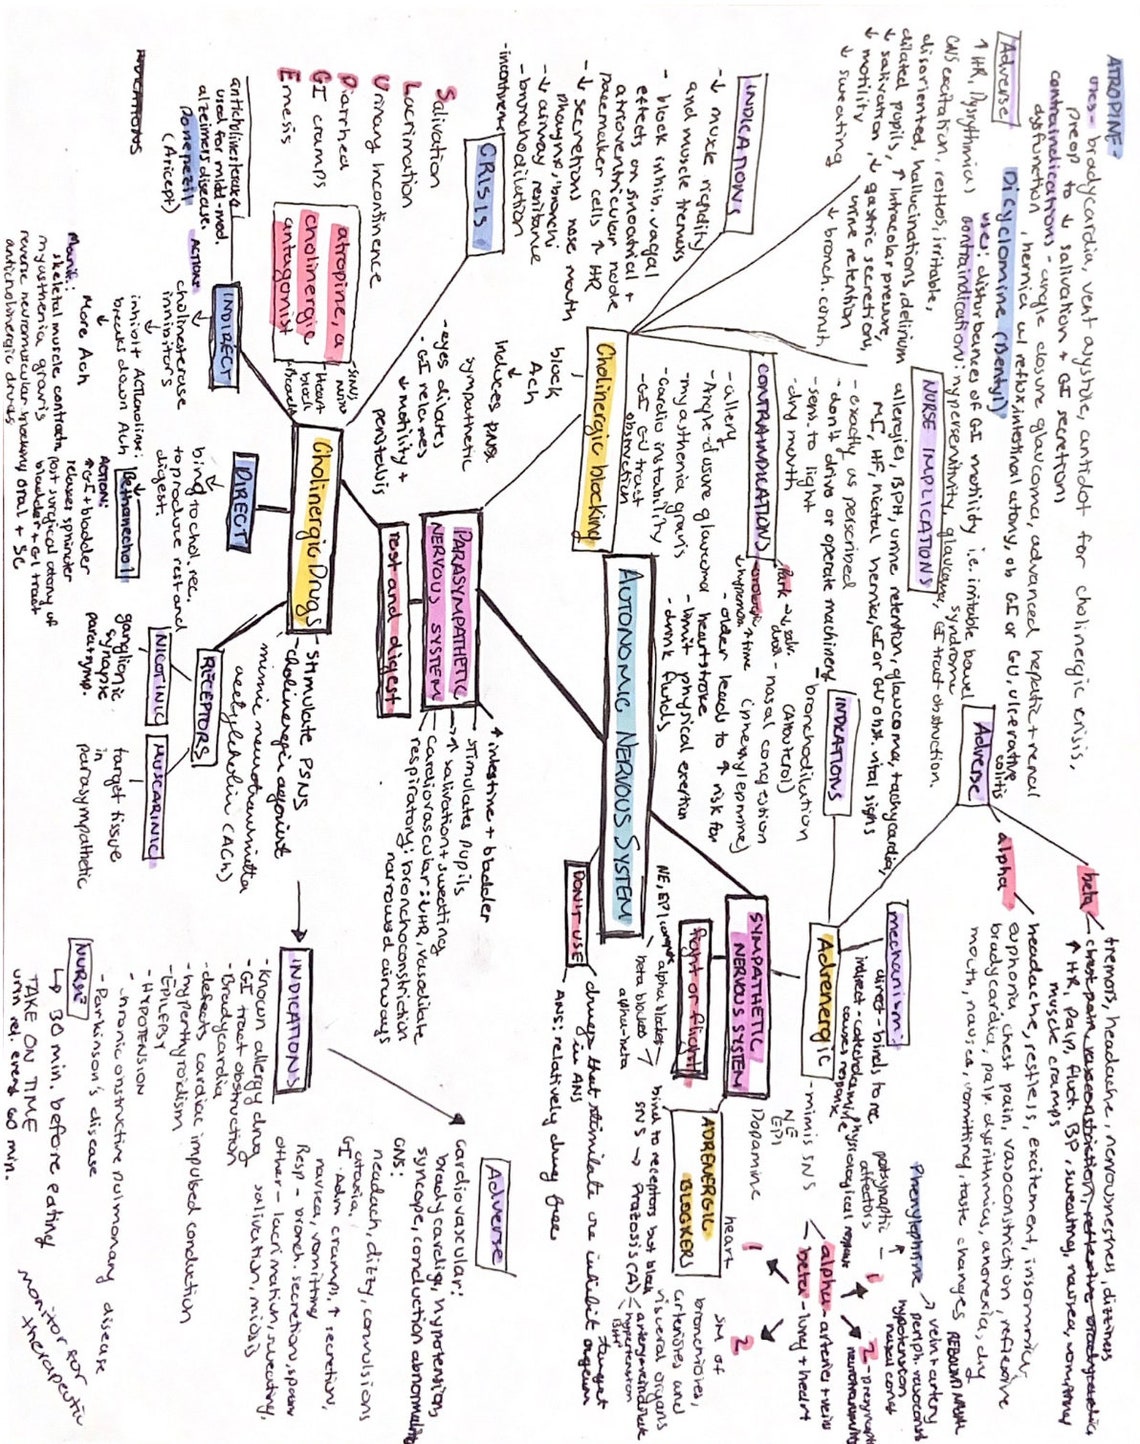 ATROPINE -
uses - bradycardia, vent asystole, antidot for cholinergic crisis,
preop to ↓ salivation + GI secretions
contraindications - angle closure glaucoma, advanced hepatic + renal
dysfunction, hernia w/ reflux, intestinal atony, ob GI or GU, ulcerative
colitis
Adverse
↑ HR, Dysrythmias
CNS excitation, restless, irritable,
disoriented, hallucinations, delirium
dilated pupils, ↑ intraocular pressure,
↓ salivation, ↓ gastric secretions,
↓ motility, urine retention
↓ sweating ↓ bronch. const
Dicyclomine (Bentyl)
uses: disturbances of GI motility i.e. irritable bowel
syndrome
contraindication: hypersensitivity, glaucoma, GI tract obstruction.
NURSE IMPLICATIONS
allergies, BPH, urine retention, glaucoma, tachycardia,
MI, HF, hiatal hernia, GI or GU obst. vital signs
- exactly as perscribed
- don't drive or operate machinery
- sens. to light
- dry mouth
INDICATIONS
- ↓ muscle rigidity
and muscle tremors
- block inhib. vagal
effects on sinoatrial +
atrioventricular node
pacemaker cells ↑ HR
- ↓ secretions nose mouth
pharynx, bronchi
- ↓ airway resitance
- bronchodilation
- incontinence
CONTRAINDICATIONS
- allerg
- Angle-closure glaucoma
- myasthenia gravis
- cardio instability
- GI GU tract
obstruction
- older leads to ↑ risk for
heartstroke
- limit physical exertion
- drink fluids
Cholinergic blocking
block
Ach
↓
induces PNS
sympathetic
- eyes dilates
- GI relaxes
↓ motility +
peristalsis
CRISIS
Salivation
Lacrimation
Urinary Incontinence
Diarrhea
GI cramps
Emesis
atropine, a
cholinergic
antagonist
AUTONOMIC NERVOUS SYSTEM
PARASYMPATHETIC
NERVOUS SYSTEM
rest and digest
↑ intestine + bladder
stimulates pupils
↑ salivation + sweating
cardiovascular: ↓HR, vasodilate
respiratory: bronchoconstriction
narrowed airways
Cholinergic Drugs
- stimulate PSNS
- cholinergic agonist
mimic neurotransmitter
acetylcholin (ACh)
INDIRECT
ACTION:
cholinesterase
inhibitors
↓
inhibit ACTion
breaks down Ach
↓
More Ach
anticholinesterase
used for mild-mod.
alzeimers disease.
Donepezil
(Aricept)
skeletal muscle contractn
myasthenia gravis
reverse neuromuscular-blocking
anticholinergic drugs
DIRECT
bind to chol. rec.
to produce rest and
digest.
Bethanechol
ACTION:
relaxes sphincter
↑ GI + bladder
post surgical atony of
bladder + GI tract
oral + SC
RECEPTORS
NICOTINIC
ganglionic
synapse
parasymp.
MUSCARINIC
target tissue
in
parasympathetic
INDICATIONS
- Known allergy drug
- GI tract obstruction
- Bradycardia
- defects cardiac impulsed conduction
- hyperthyroidism
- EPILEPSY
- HYPOTENSION
- chronic onstructive pulmonary disease
- Parkinson's disease
NURSE
↳ 30 min. before eating
TAKE ON TIME
60 min.
monitor for
therapeutic
Adverse
cardiovascular:
bradycardia, hypotension,
syncope, conduction abnormality
CNS:
headach, dizzy, convulsions
ataxia,
GI: Adm cramps, ↑ secretion,
nausea, vomitting
Resp - bronch. secretions, spasm
other - lacrimation, sweating,
salivation, miosis
DON'T USE
drugs that stimulate are inhibit target organ
in ANS
ANS: relatively drug free
SYMPATHETIC
NERVOUS SYSTEM
fight or flight
Adrenergic
- mimis SNS
NE
EPI
Dopamine
mechanism:
direct - binds to re
indirect - catecholamine
causes response
INDICATIONS
- bronchodilation
(Albuterol)
- nasal congestion
(phenylephrine)
Adverse
beta
tremors, headache, nervousness, dizziness
↑ HR, palp, fluct. BP, sweating, nausea, vomitting
muscle cramps
alpha
headache, restless, excitement, insomnia,
euphoria chest pain, vasoconstriction, reflexive
bradycardia, palp. dysrithmias, anorexia, dry
mouth, nausea, vomitting, taste changes
Phenylephrine
→ vein + artery
periph. vasoconst
hypotension
nasal const
alpha - arteries + veins
beta - lung + heart
1 2
heart
1
2
SM of
bronchioles,
arterioles and
visceral organs
ADRENERGIC
BLOCKERS
bind to receptors but block
SNS → Prazosis (A)
alpha blocker
beta blocker
alpha-beta